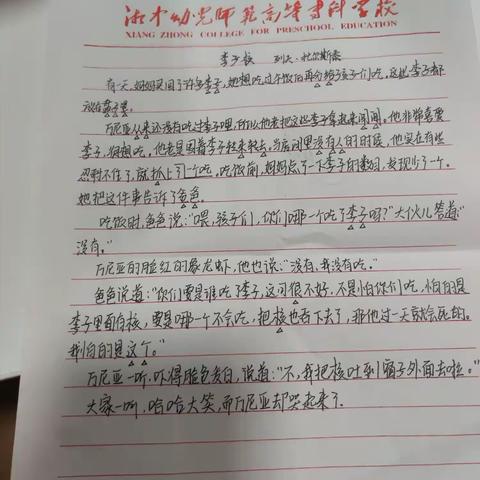 湘中幼儿师范高等专科学校
XIANG ZHONG COLLEGE FOR PRESCHOOL EDUCATION
李子核 列夫·托尔斯泰
有一天,妈妈买回了许多李子,她想吃过午饭后再分给孩子们吃,这些李子都
放在盘子里。
万尼亚从来还没有吃过李子哩,所以他老把这些李子拿起来闻闻。他非常喜爱
李子,很想吃。他老是围着李子走来走去,当房间里没有人的时候,他实在有些
忍耐不住了,就抓上了一个吃,吃饭前,妈妈点了一下李子的数目,发现少了一个。
她把这件事告诉了爸爸。
吃饭时,爸爸说:“喂,孩子们,你们哪一个吃了李子吗?”大伙儿答道:
“没有。”
万尼亚的脸红的像龙虾,他也说:“没有,我没有吃。”
爸爸说道:“你们要是谁吃了李子,这可很不好,不是怕你们吃,怕的是
李子里面有核,要是哪一个不会吃,把核也吞下去了,那他过一天就会死的。
我怕的是这个。”
万尼亚一听,吓得脸色发白,说道:“不,我把核吐到窗子外面去啦。”
大家一听,哈哈大笑,而万尼亚却哭起来了.